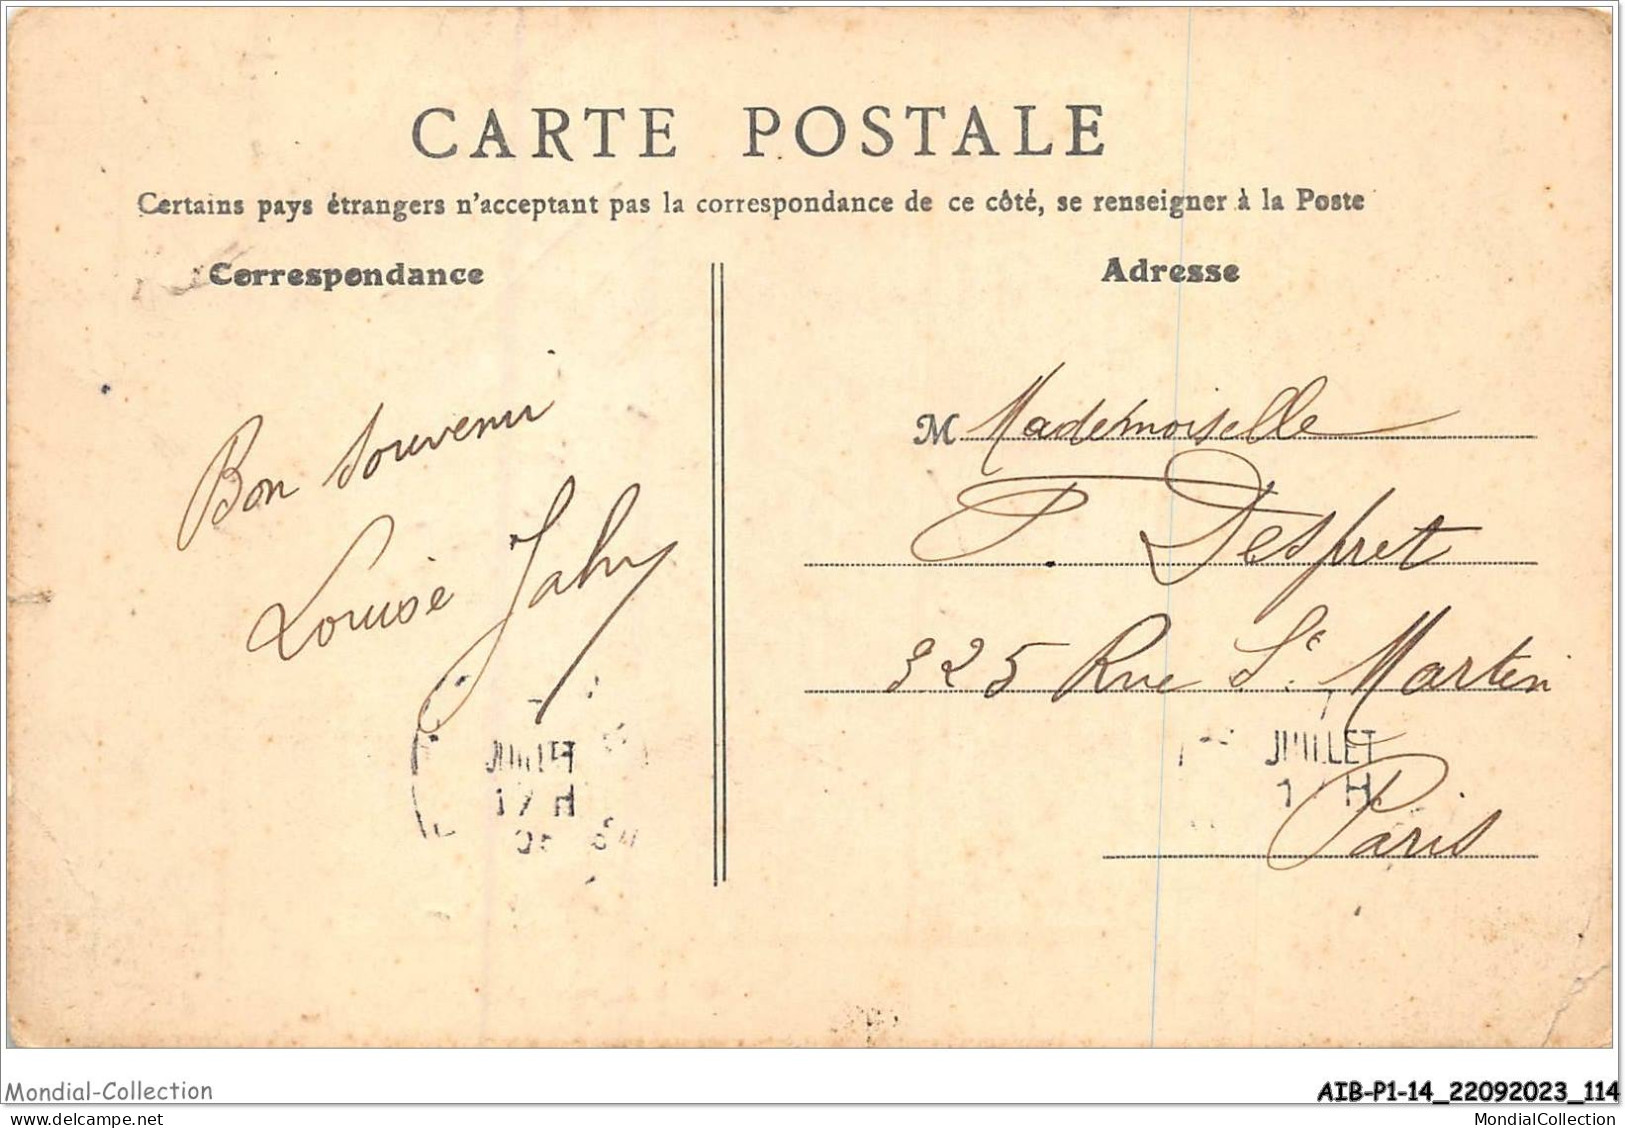 CARTE POSTALE
Certains pays étrangers n'acceptant pas la correspondance de ce côté, se renseigner à la Poste
Correspondance
Bon souvenir
Louise Jahy
Adresse
M Mademoiselle
P. Despret
325 Rue St. Martin
Paris
JUILLET
H
JUILLET
1 H
Mondial-Collection
AIB-P1-14_22092023_114
MondialCollection